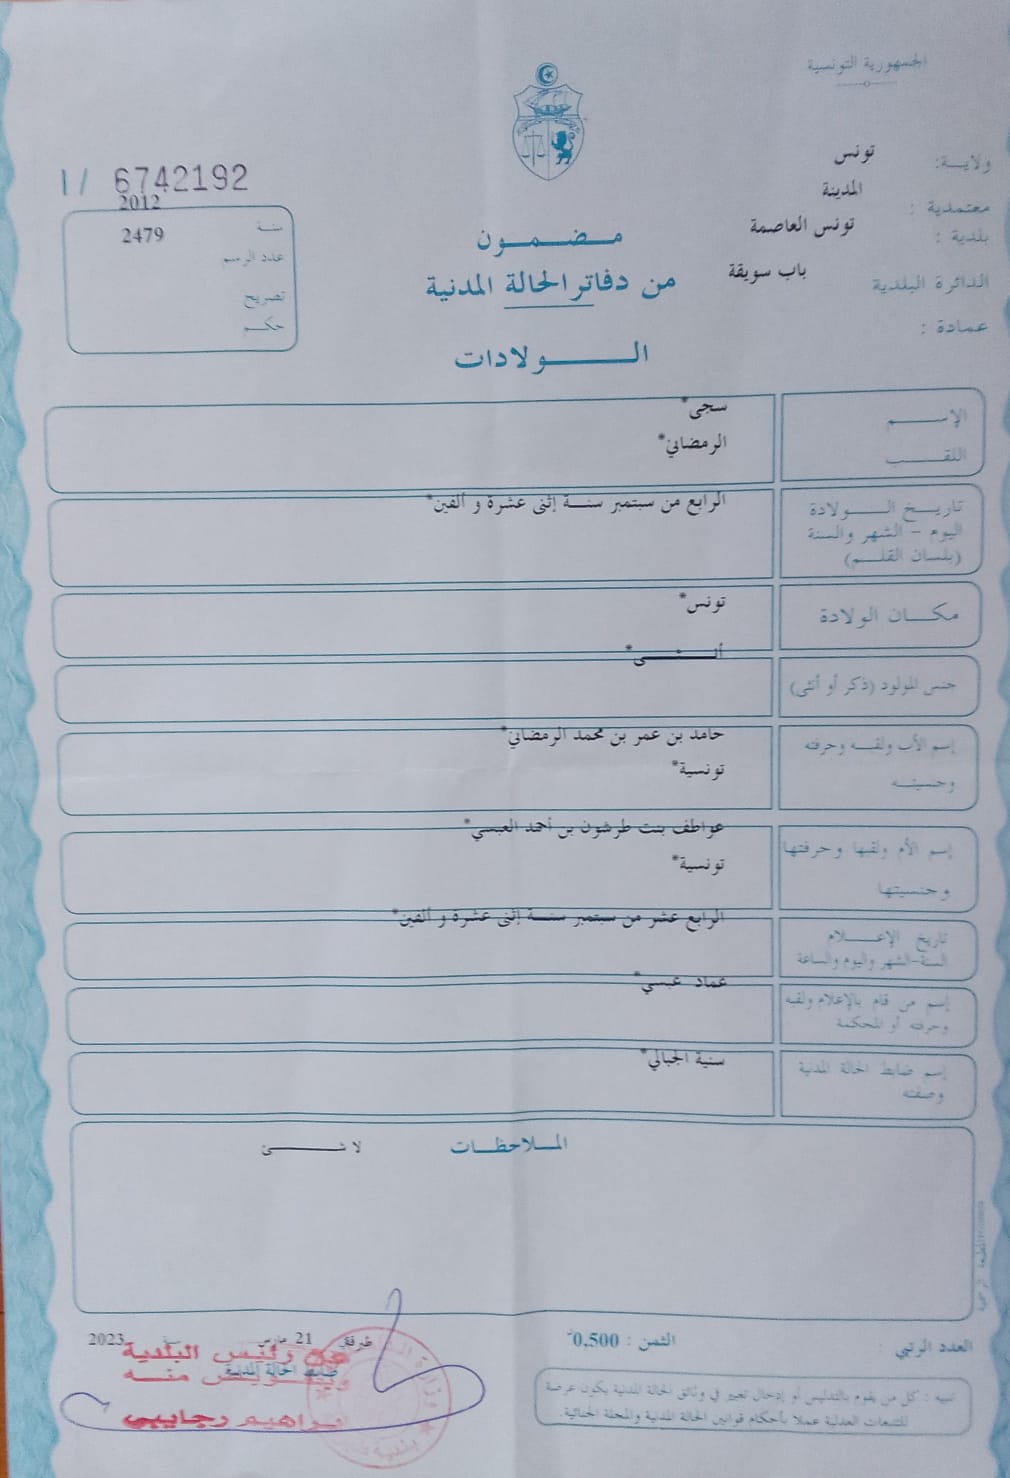 الجمهورية التونسية
ولاية: تونس
معتمدية : المدينة
بلدية : تونس العاصمة
الدائرة البلدية باب سويقة
عمادة :
I / 6742192
سنة 2012
عدد الرسم 2479
تصريح
حكم
مضمون
من دفاتر الحالة المدنية
الولادات
الإسم سجى*
اللقب الرمضاني*
تاريخ الولادة الرابع من سبتمبر سنة إثنى عشرة و ألفين*
اليوم - الشهر والسنة
(بلسان القلم)
مكان الولادة تونس*
جنس المولود (ذكر أو أنثى) أنثى*
إسم الأب ولقبه وحرفته حامد بن عمر بن محمد الرمضاني*
وجنسيته تونسية*
إسم الأم ولقبها وحرفتها عواطف بنت طرشون بن أحمد العبسي*
وجنسيتها تونسية*
تاريخ الإعلام الرابع عشر من سبتمبر سنة إثنى عشرة و ألفين*
السنة-الشهر واليوم والساعة
إسم من قام بالإعلام ولقبه عماد عبسي*
وحرفته أو المحكمة
إسم ضابط الحالة المدنية سنية الجبالي*
وصفته
الملاحظات لا شئ
العدد الرتبي : الثمن : 0,500 طبرقة 21 مارس 2023
ضابط الحالة المدنية
عن رئيس البلدية
وبتفويض منه
ابراهيم رجايبي
تنبيه : كل من يقوم بالتدليس أو إدخال تغيير في وثائق الحالة المدنية يكون عرضة
للتتبعات العدلية عملا بأحكام قوانين الحالة المدنية والمجلة الجنائية.